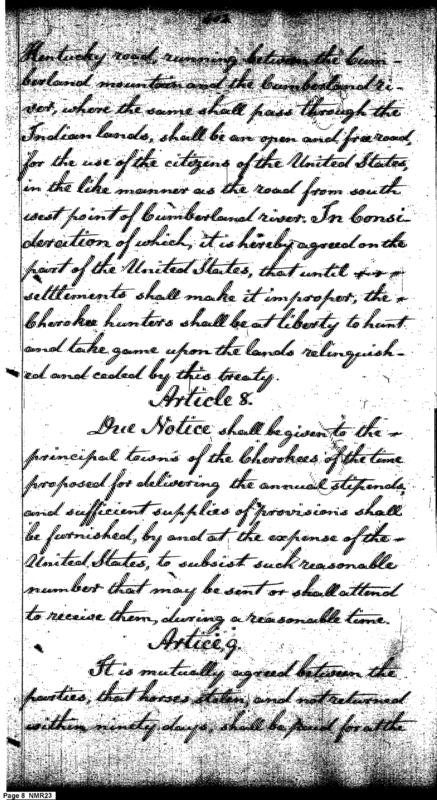 Kentucky road, running between the Cum-
berland mountain and the Cumberland ri-
ver, where the same shall pass through the
Indian lands, shall be an open and free road,
for the use of the citizens of the United States,
in the like manner as the road from south
west point of Cumberland river. In Consi-
deraction of which, it is hereby agreed on the
part of the United States, that until
settlements shall make it improper, the
Cherokee hunters shall be at liberty to hunt
and take game upon the lands relinquish-
ed and ceded by this treaty.
Article 8.
Due Notice shall be given to the
principal towns of the Cherokees of the time
proposed for delivering the annual stipends,
and sufficient supplies of provisions shall
be furnished, by and at the expense of the
United States, to subsist such reasonable
number that may be sent or shall attend
to receive them, during a reasonable time.
Artice 9.
It is mutually agreed between the
parties, that horses stolen, and not returned
within ninety days, shall be paid for at the
Page 8 NMR23